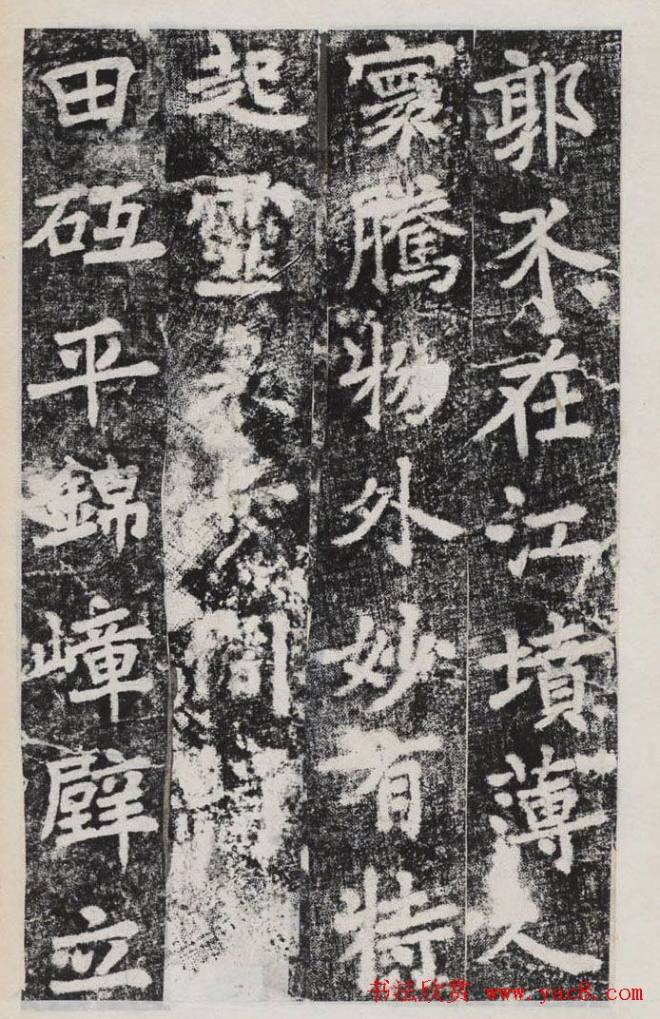 郭不在江墳薄人
寰騰物外妙有特
起靈間
田砥平錦嶂壁立
书法欣赏 www.yac8.com